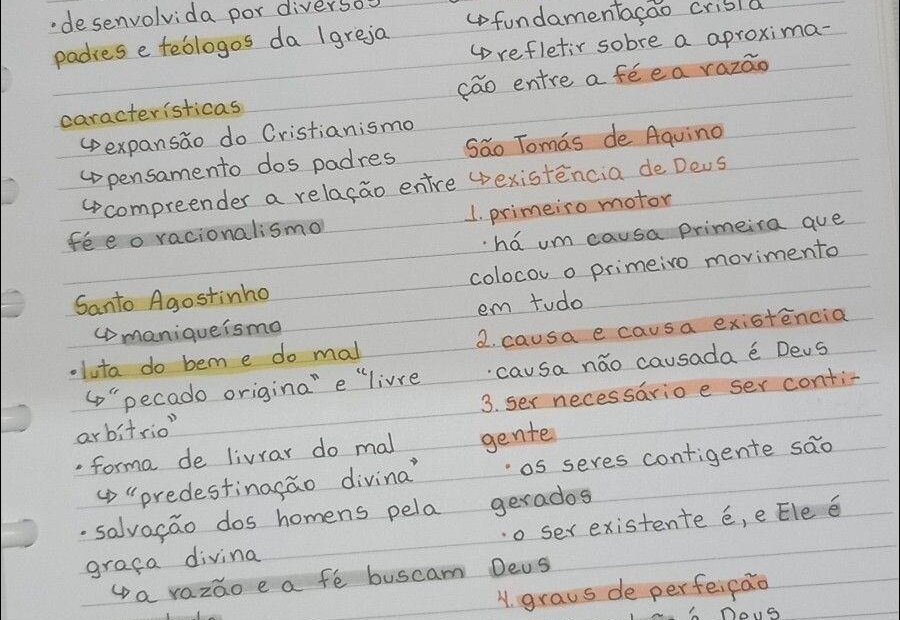 ·desenvolvida por diversos
padres e teólogos da Igreja
características
↳expansão do Cristianismo
↳pensamento dos padres
↳compreender a relação entre
fé e o racionalismo
Santo Agostinho
↳maniqueísmo
·luta do bem e do mal
↳"pecado origina" e "livre
arbítrio"
·forma de livrar do mal
↳"predestinação divina"
·salvação dos homens pela
graça divina
↳a razão e a fé buscam
↳fundamentação cristã
↳refletir sobre a aproxima-
ção entre a fé e a razão
São Tomás de Aquino
↳existência de Deus
1. primeiro motor
·há um causa primeira que
colocou o primeiro movimento
em tudo
2. causa e causa existência
·causa não causada é Deus
3. ser necessário e ser conti-
gente
·os seres contigente são
gerados
·o ser existente é, e Ele é
Deus
4. graus de perfeição
é Deus